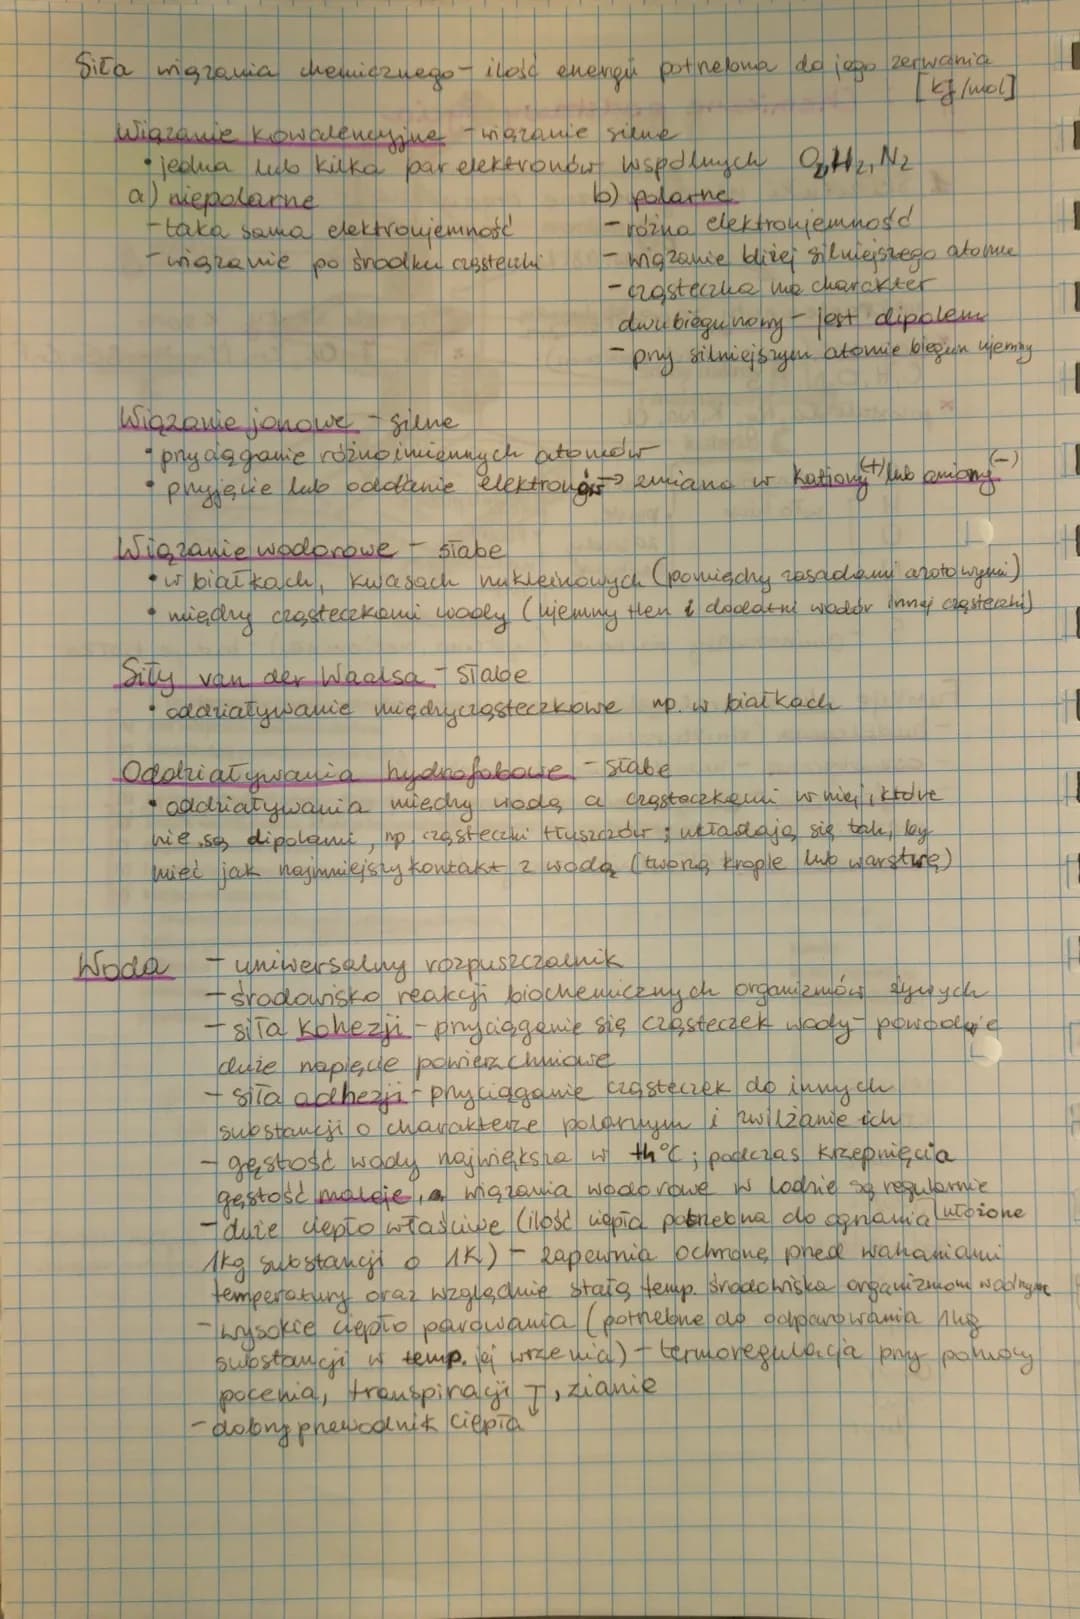 Siła wiązania chemicznego - ilość energii potrzebna do jego zerwania
[kJ/mol]
Wiązanie kowalencyjne - wiązanie silne
• jedna lub kilka par elektronów wspólnych O2, H2, N2
a) niepolarne
- taka sama elektroujemność
- wiązanie po środku cząsteczki
b) polarne
- różna elektroujemność
- wiązanie bliżej silniejszego atomu
- cząsteczka ma charakter
dwubiegunowy - jest dipolem
- przy silniejszym atomie biegun ujemny
Wiązanie jonowe - silne
• przyciąganie różnoimiennych atomów
• przyjęcie lub oddanie elektronów → zmiana w kationy(+) lub aniony(-)
Wiązanie wodorowe - słabe
• w białkach, kwasach nukleinowych (pomiędzy zasadami azotowymi)
• między cząsteczkami wody (ujemny tlen i dodatni wodór innej cząsteczki)
Siły van der Waalsa - słabe
• oddziaływanie międzycząsteczkowe np. w białkach
Oddziaływania hydrofobowe - słabe
• oddziaływania między wodą a cząsteczkami w niej, które
nie są dipolami, np. cząsteczki tłuszczów; układają się tak, by
mieć jak najmniejszy kontakt z wodą (tworzą krople lub warstwę)
Woda - uniwersalny rozpuszczalnik
- środowisko reakcji biochemicznych organizmów żywych
- siła kohezji - przyciąganie się cząsteczek wody - powoduje
duże napięcie powierzchniowe
- siła adhezji - przyciąganie cząsteczek do innych
substancji o charakterze polarnym i zwilżanie ich
- gęstość wody największa w 4°C; podczas krzepnięcia
gęstość maleje, a wiązania wodorowe w lodzie są regularnie
ułożone
- duże ciepło właściwe (ilość ciepła potrzebna do ogrzania
1kg substancji o 1K) - zapewnia ochronę przed wahaniami
temperatury oraz względnie stałą temp. środowiska organizmom wodnym
- wysokie ciepło parowania (potrzebne do odparowania 1kg
substancji w temp. jej wrzenia) - termoregulacja przy pomocy
pocenia, transpiracji ↑, zianie
- dobry przewodnik ciepła